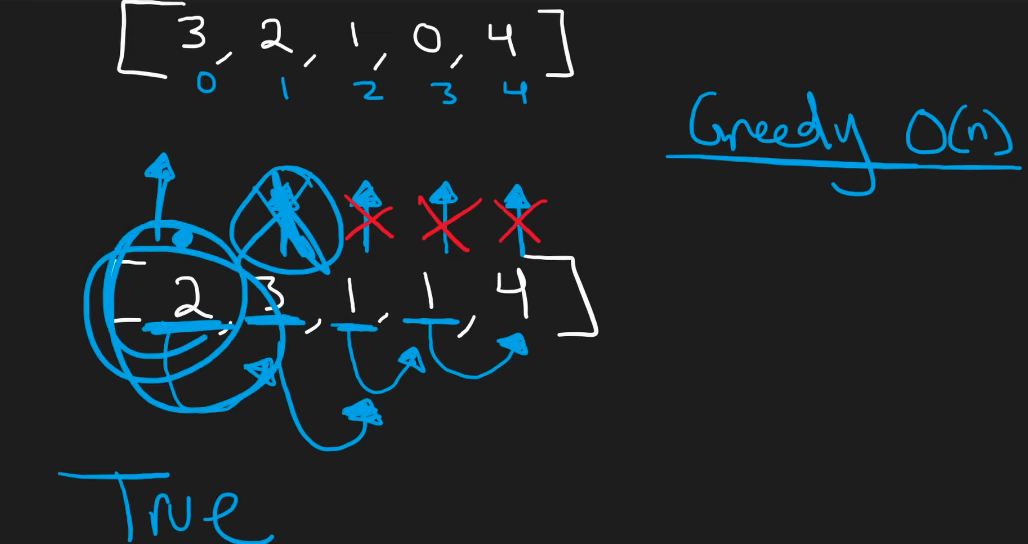 [3, 2, 1, 0, 4]
0 1 2 3 4
Greedy O(n)
[2, 3, 1, 1, 4]
True